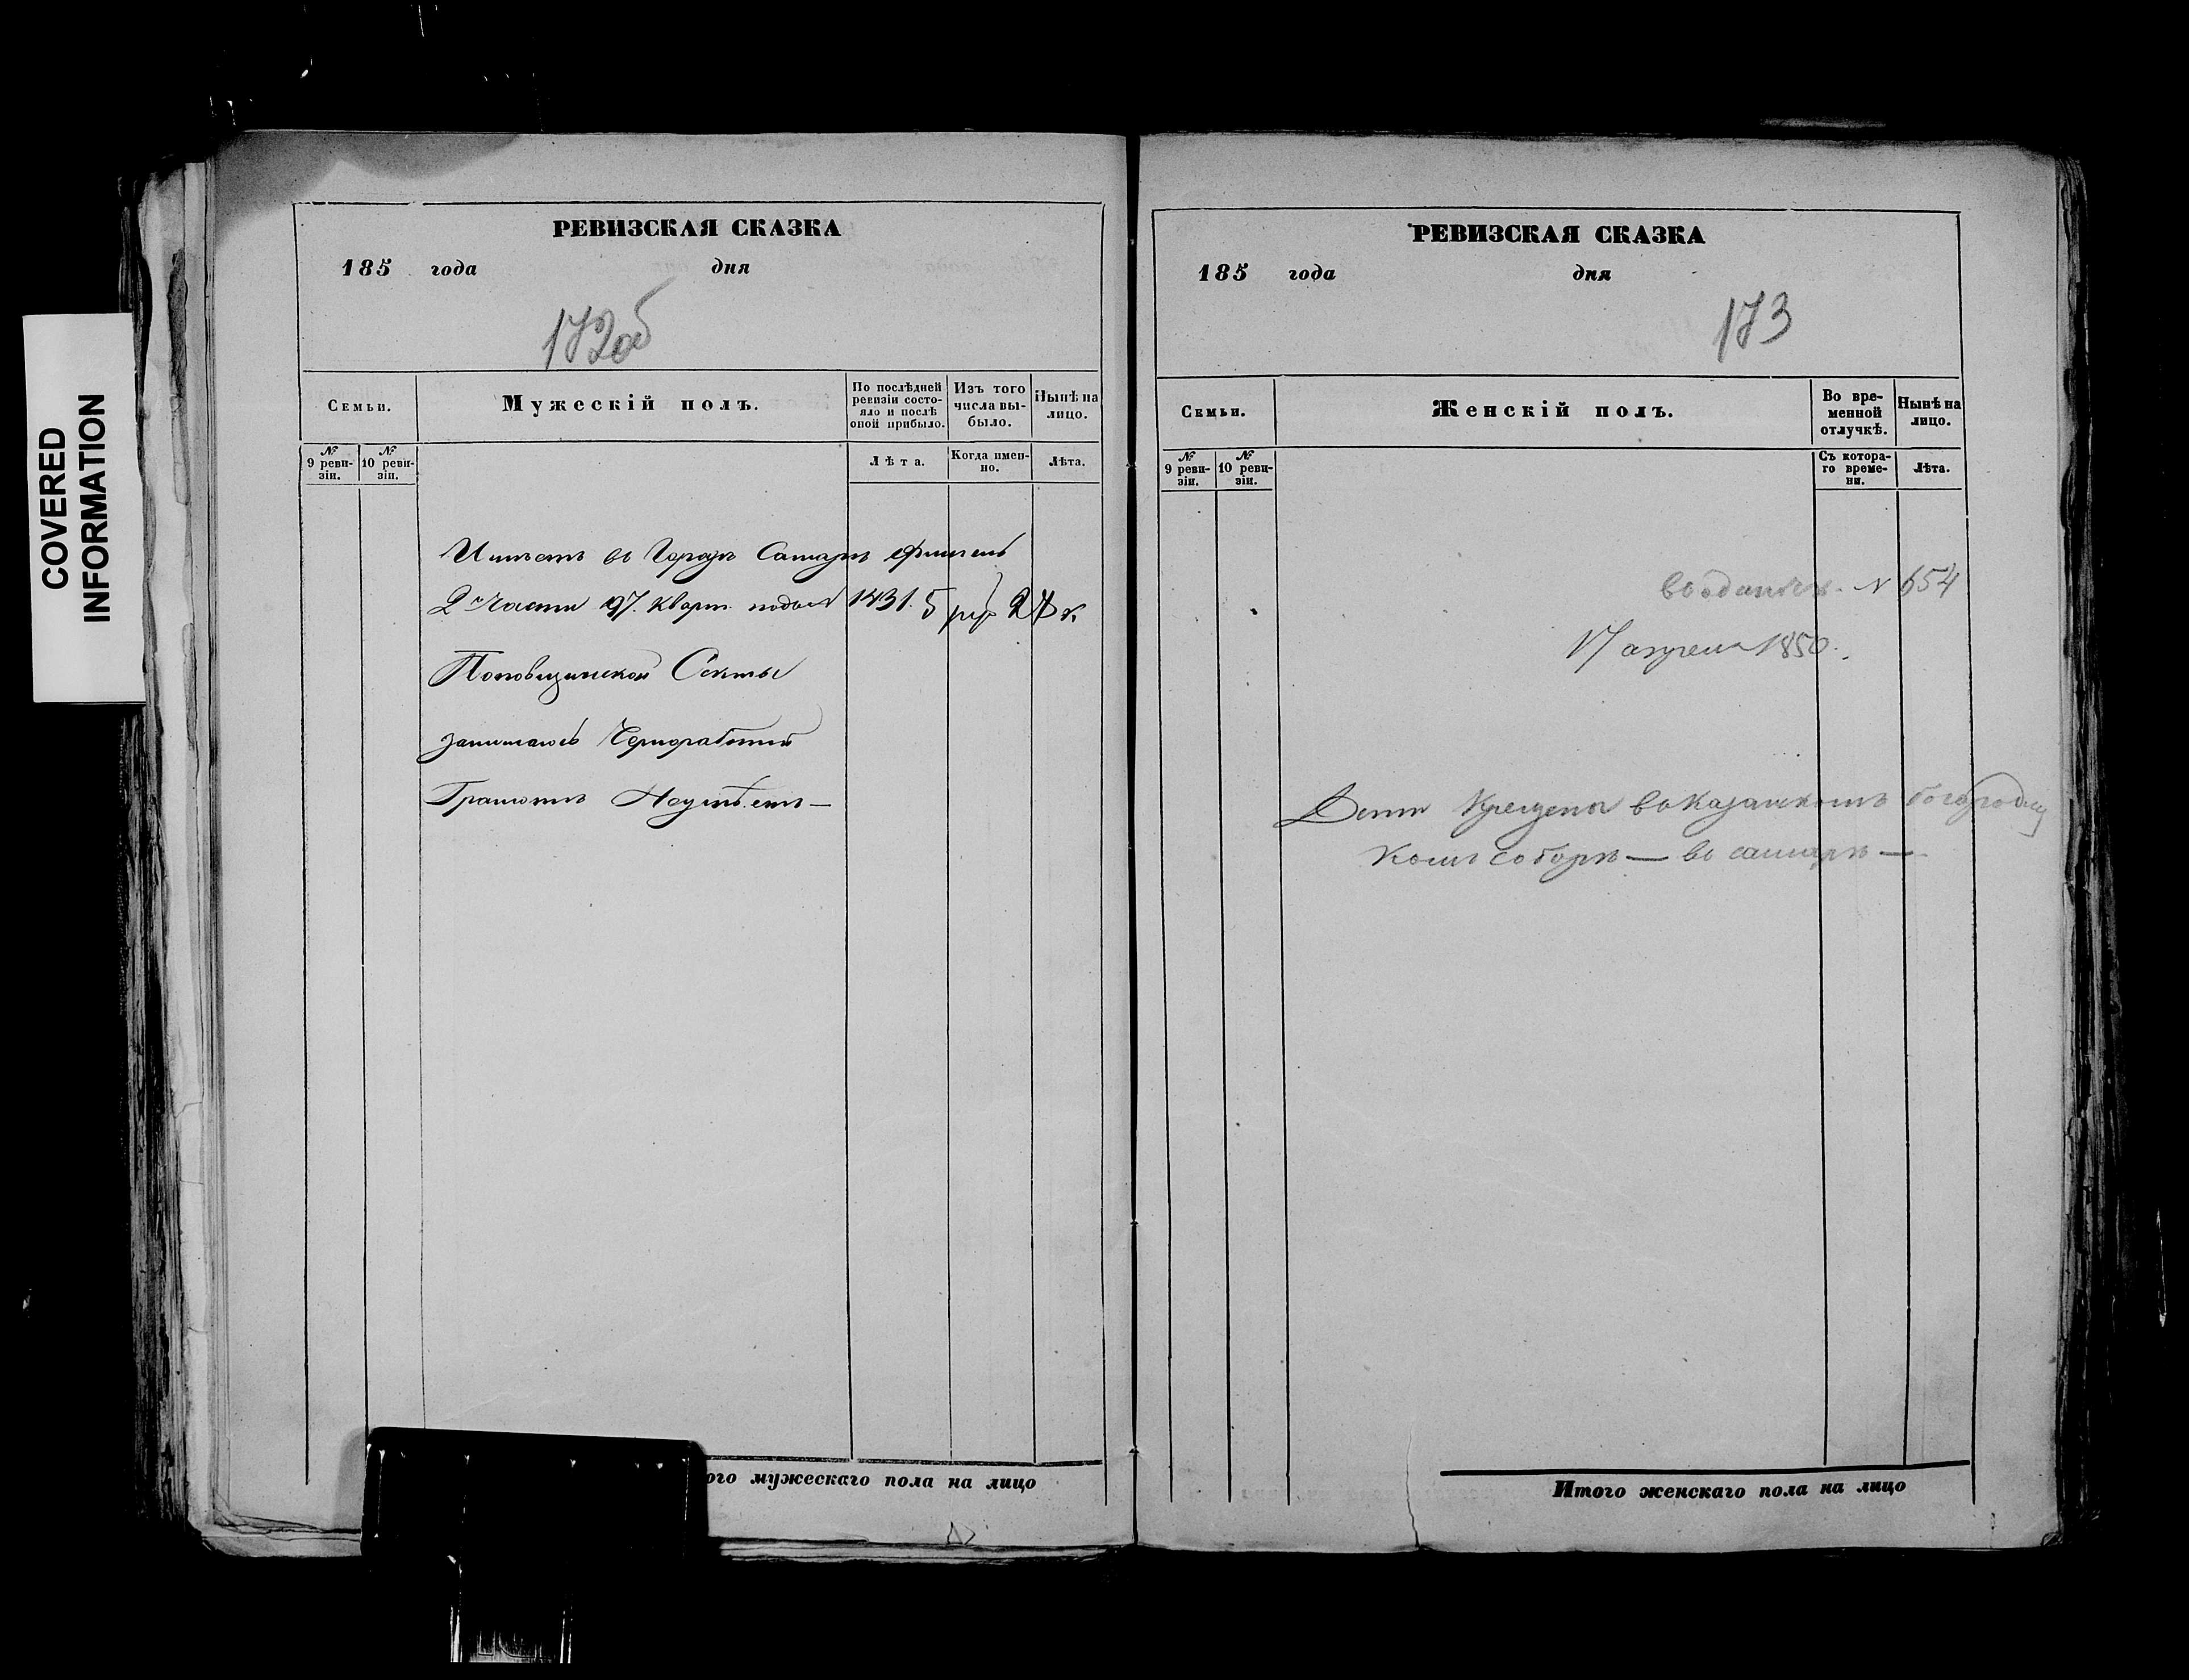 COVERED
INFORMATION
РЕВИЗСКАЯ СКАЗКА
185 года дня
172об
Семьи.
Мужескій полъ.
По послѣдней
ревизіи состо-
яло и послѣ
оной прибыло.
Изъ того
числа вы-
было.
Нынѣ на
лицо.
№
9 реви-
зіи.
№
10 реви-
зіи.
Лѣта.
Когда имен-
но.
Лѣта.
Имѣетъ въ Городѣ Самарѣ
2й Части 197. Кварт. подъ № 1431. 5 руб 27 к.
Поповщинской Секты
занимаюсь Чернработой
Грамотѣ Неумѣетъ —
ого мужескаго пола на лицо
РЕВИЗСКАЯ СКАЗКА
185 года дня
173
Семьи.
Женскій полъ.
Во вре-
менной
отлучкѣ.
Нынѣ на
лицо.
№
9 реви-
зіи.
№
10 реви-
зіи.
Съ котора-
го време-
ни.
Лѣта.
№ 654
17 апреля 1850.
Дети Крещены въ Казанскомъ богородиц
комъ соборѣ — въ самарѣ —
Итого женскаго пола на лицо